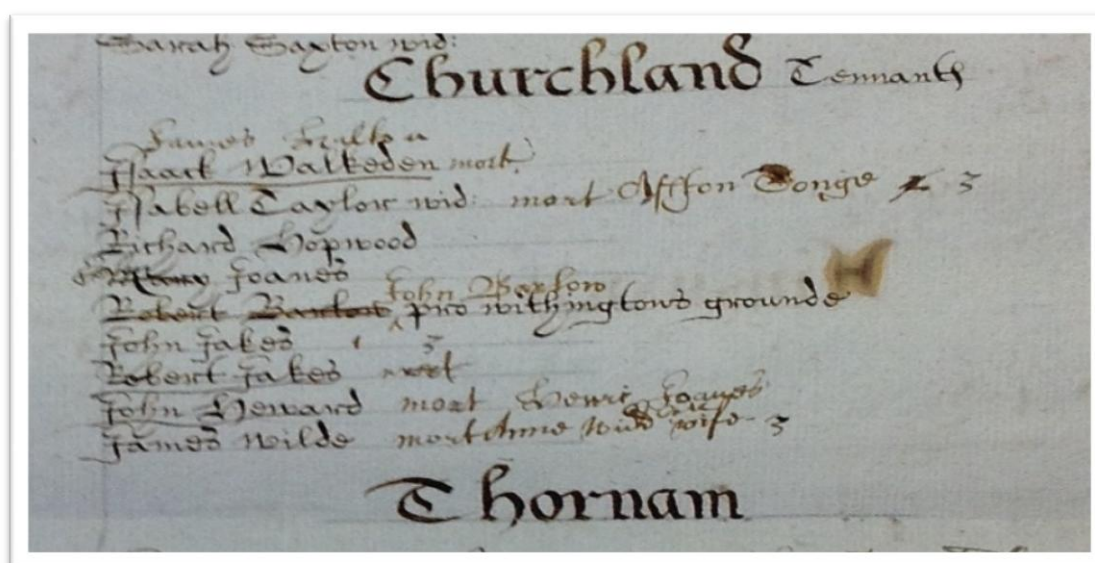 Sarah Saxton wid:
Churchland Tennants
James
Isaack Walkeden mort.
Isabell Taylor wid: mort Tonge 3
Richard Hopwood
Joanes
John Barlow
Robert Barlow pro withingtons grounde
H
John Jakes 3
Robert Jakes mort
John Heward mort Henri Joanes
James Wilde mort wife 3
Thornam